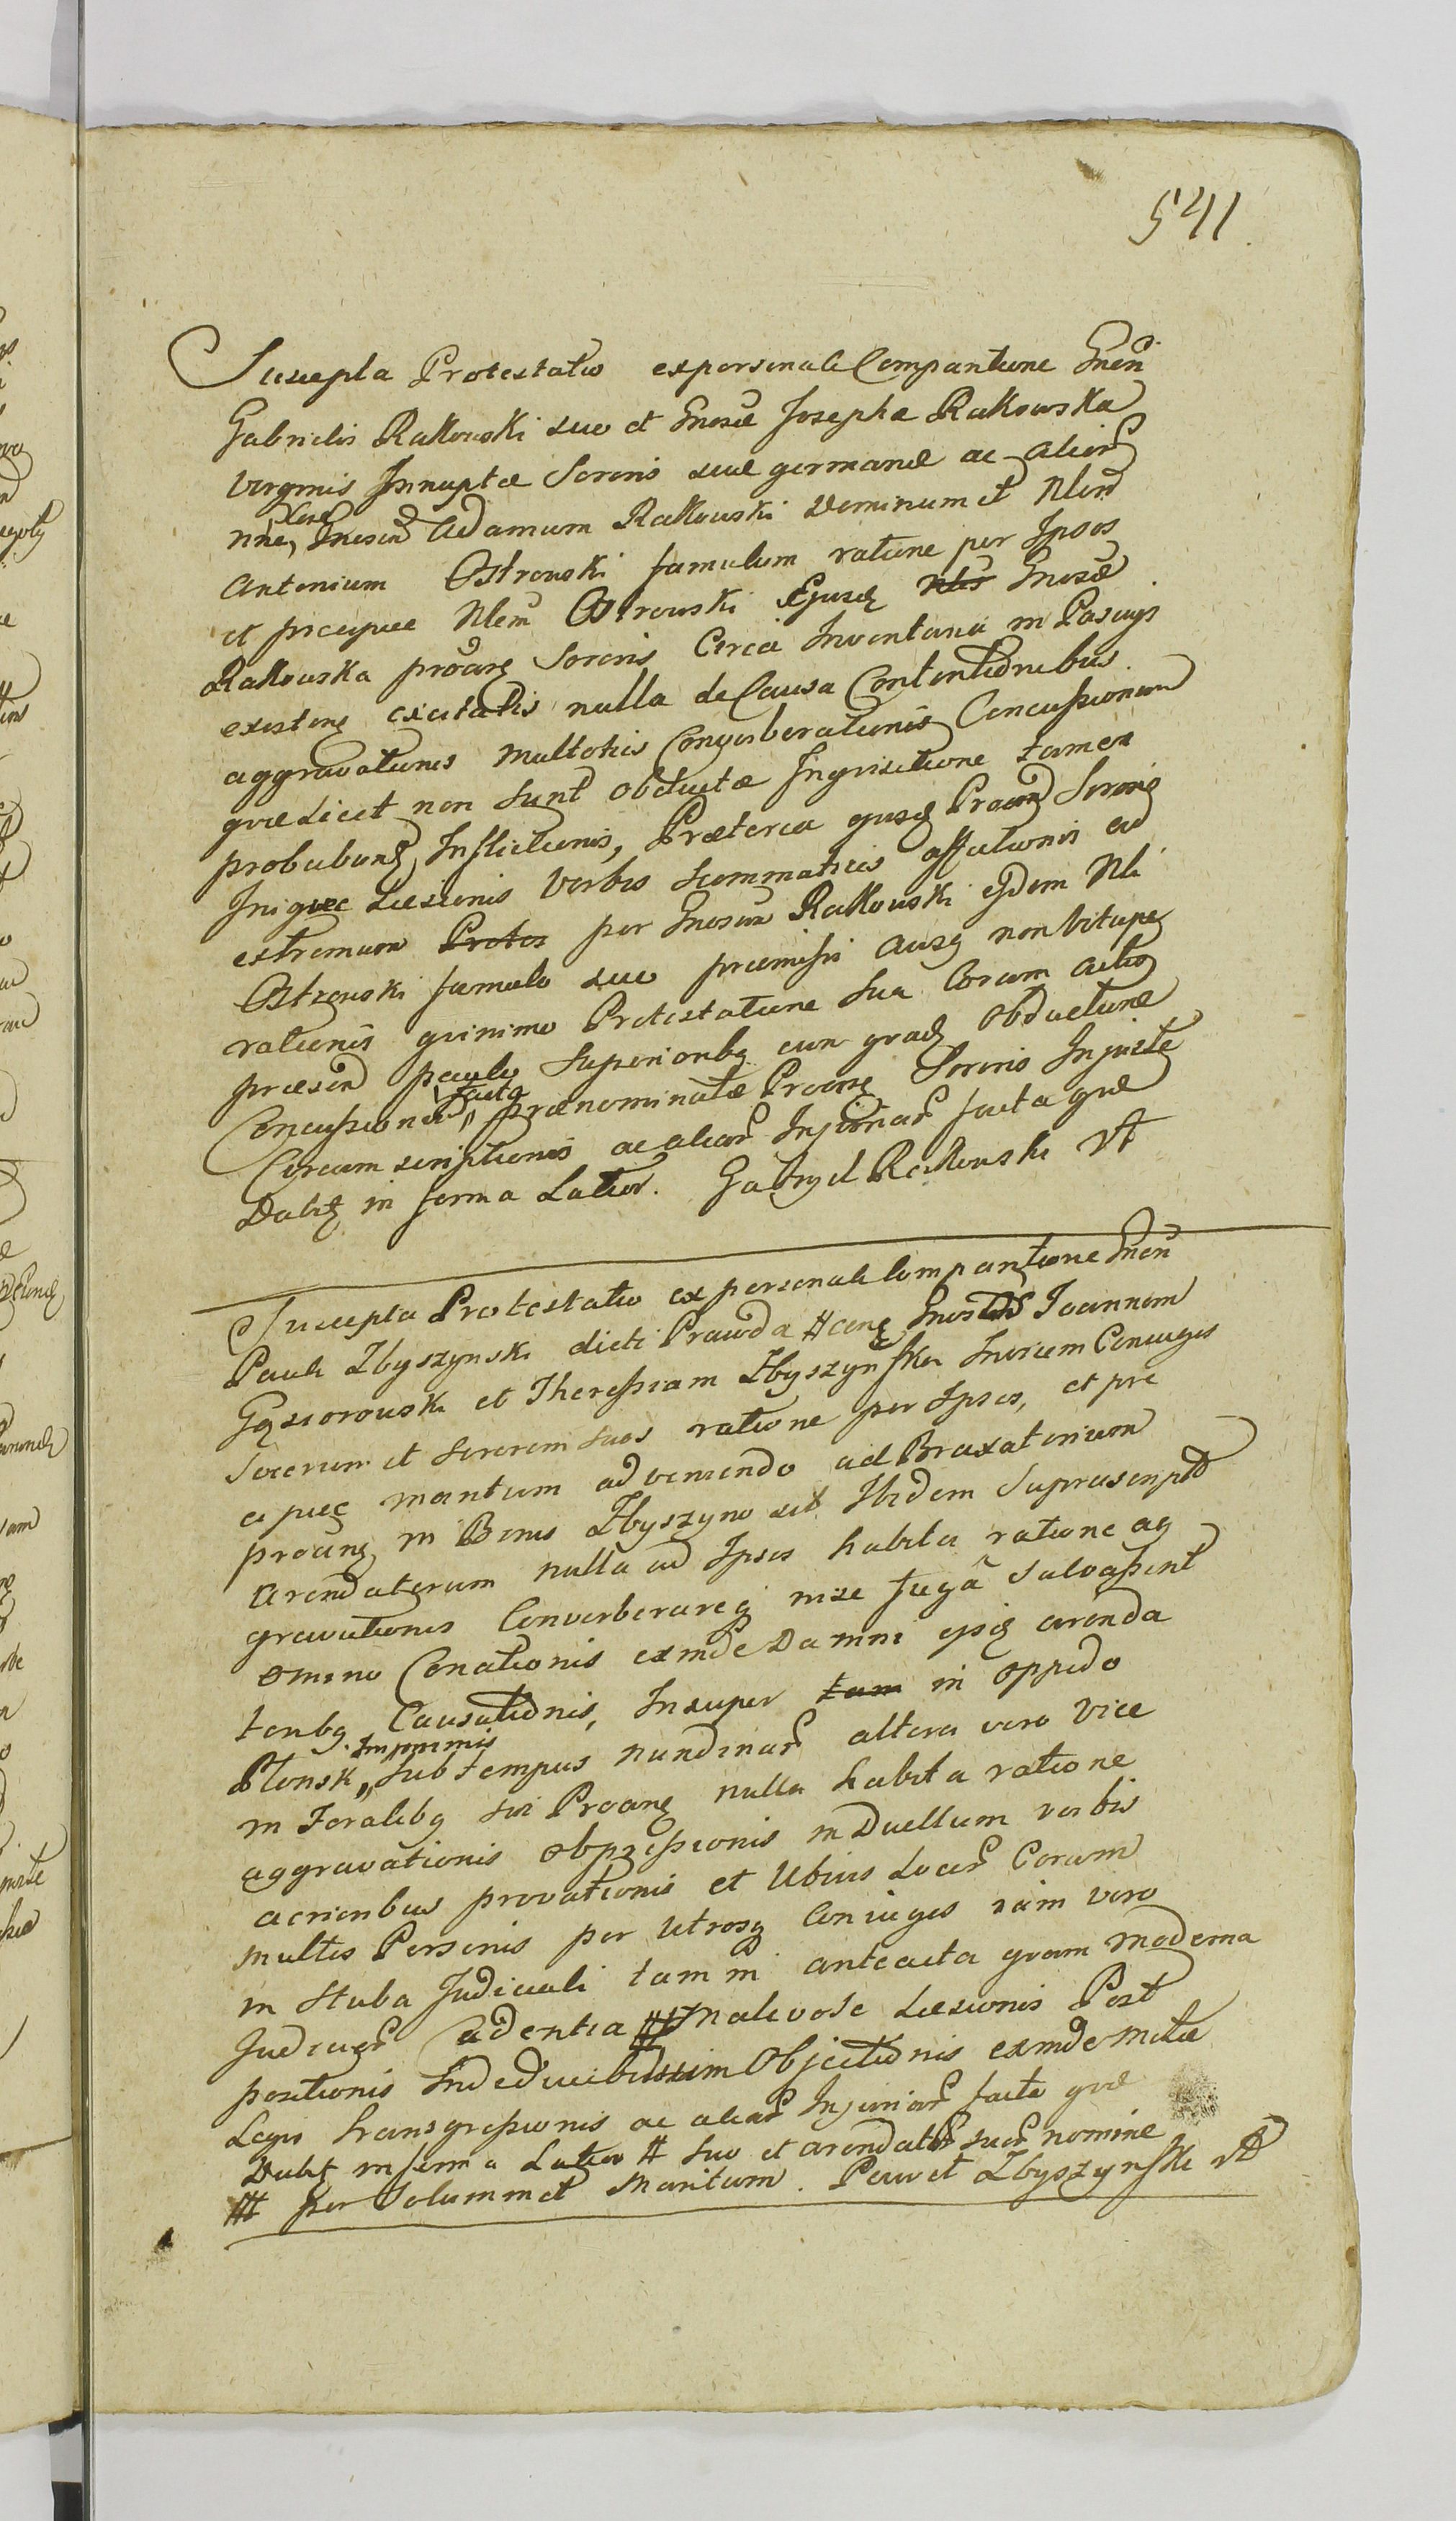 541
Suscepta Protestatio ex personali Comparitione Gnen
Gabrielis Rakowski suo et Gnosae Josephae Rakowska
Virginis Innuptae Sororis suae germanae ac alior
nne, Gnosum Adamum Rakowski Dominum et Nlem
Antonium Ostrowski famulum ratione per Ipsos
et praecipue Nlem Ostrowski Ejusdq Nlis Gnosae
Rakowska proang Sororis Circa Inventaria in Pascuys
existeng excitatis nulla de Causa Contentionibus
aggravationis multotius Conquerberationis Concussionum
quae licet non sunt obductae Inqvisitione tamen
probabunt, Inflictionis, Praeterea ejusdq Proang Sororis
Iniquae Laesionis Verbis Scommaticis affationis ad
extremum Protes per Gnosum Rakowski eidem Nli
Ostrowski famulo suo praemissi ausq non vitupe
rationis quinimo Protestatione Sua Coram actis
praesen paulo Superioribq cum grad Obductione
Concussionum facta, praenominatae Proang Sororis Injuste
Circumscriptionis ac aliar Injuriar facta quae
Dabit in forma Latior. Gabryel Rakowski mp
Suscepta Protestatio ex personali Comparitione Gnen
Pauli Zbyszynski dicti Prawda # cong Gnosos Joannem
Gąsiorowski et Theressiam Zbyszynska Invicem Coniuges
Socerum et Sororem suos ratione per Ipsos, et prae
cipue maritum adveniendo ad Braxatorium
proang in Bonis Zbyszyno sit Ibidem Suprascript
Arendatorum nulla ad Ipsos habita ratione ag
gravationis Converberareq nise fugâ Salvassent
omnino Conationis exinde Damni ipsis arenda
toribq Causationis, Insuper tam in oppido
Płonsk Inprimis sub tempus nundinar altera vero vice
in Foralibq sui Proang nulla habita ratione
aggravationis obpressionis in Duellum verbis
acrioribus provocationis et Ubivis Locor Coram
multis Personis per Utrosq Coniuges iam vero
in Stuba Judiciali tam in anteacta quam moderna
Judicior Cadentia ## Malevole Laesionis Post
positionis Indeducibilissim Objectionis exinde metae
Legis transgressionis ac aliar Injuriar facta quae
Dabit in forma Latior # suo et arendator suor nomine
## per Solummet Maritum. Paweł Zbyszynski mp